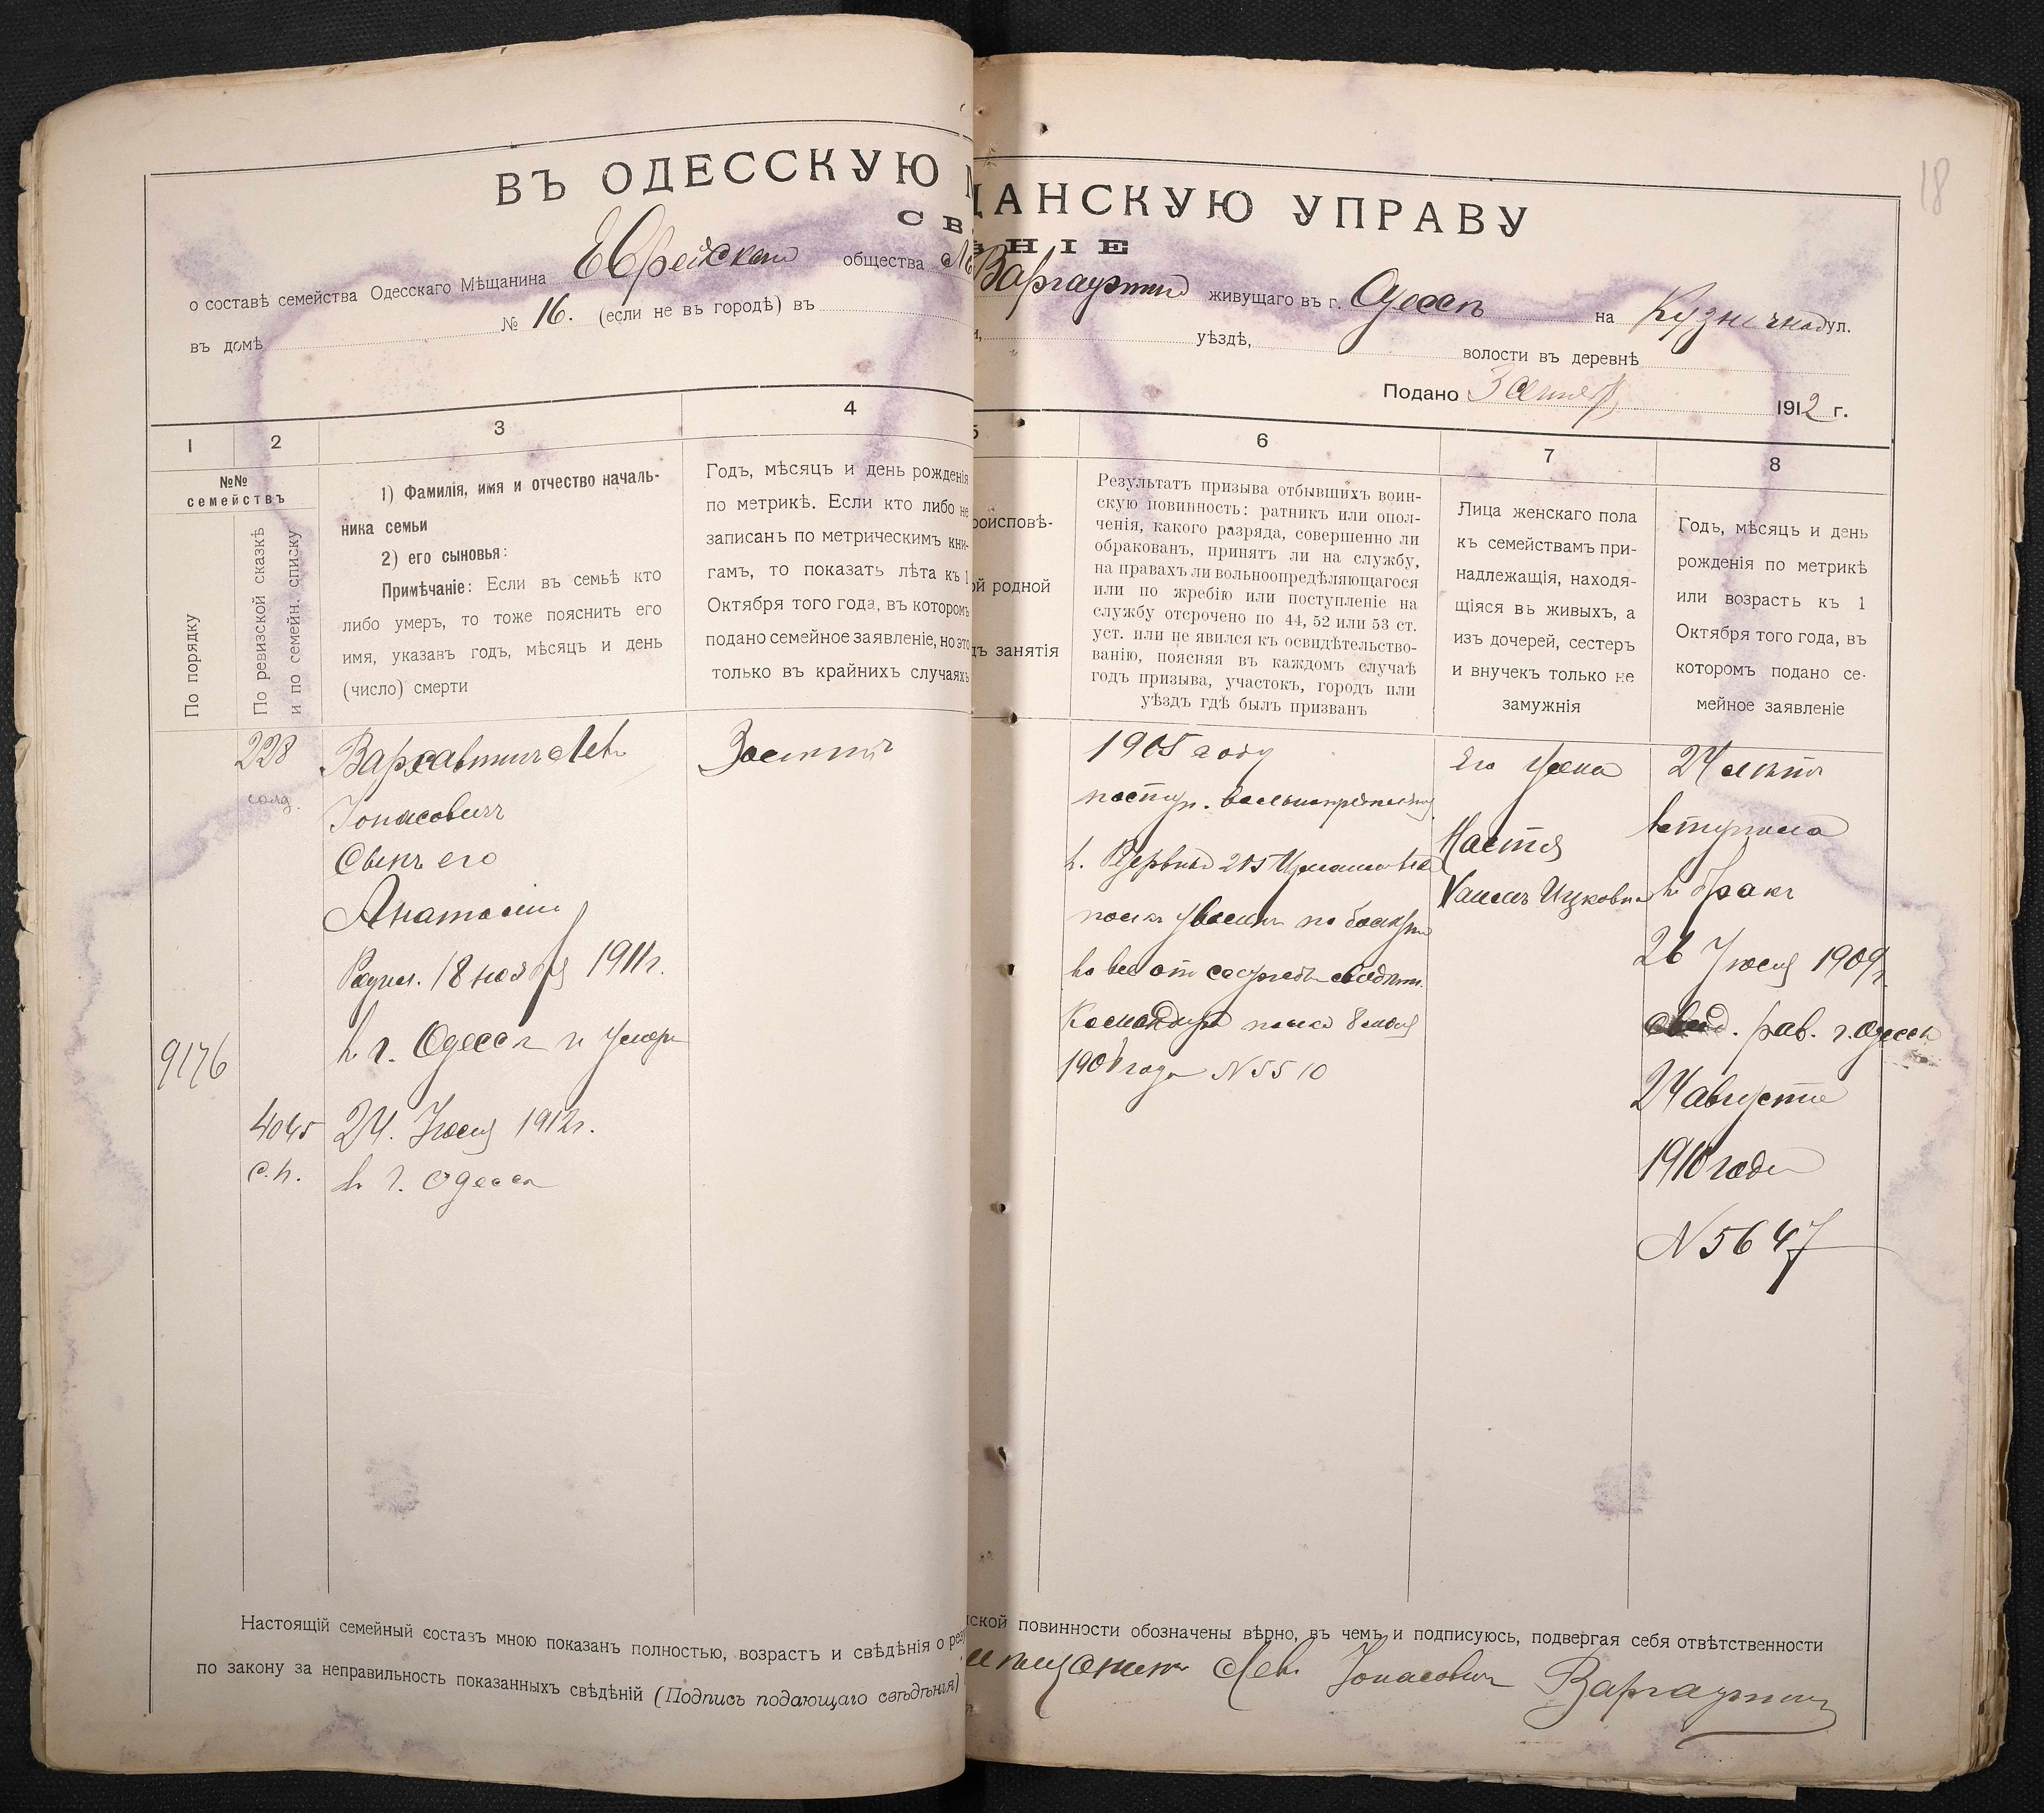 18
ВЪ ОДЕССКУЮ
ЩАНСКУЮ УПРАВУ
СВ
ѢНІЕ
о составѣ семейства Одесскаго Мѣщанина Еврейскаго общества
живущаго въ г. Одессѣ на Кузнечной ул.
въ домѣ № 16. (если не въ городѣ) въ
и, уѣздѣ, волости въ деревнѣ
Подано 3 1912 г.
1 2 3 4
5 6 7 8
№№
семействъ
По порядку
По ревизской сказкѣ
и по семейн. списку
1) Фамилія, имя и отчество началь-
ника семьи
2) его сыновья:
Примѣчаніе: Если въ семьѣ кто
либо умеръ, то тоже пояснить его
имя, указавъ годъ, мѣсяцъ и день
(число) смерти
Годъ, мѣсяцъ и день рожденія
по метрикѣ. Если кто либо не
записанъ по метрическимъ кни-
гамъ, то показать лѣта къ 1
Октября того года, въ которомъ
подано семейное заявленіе, но это
только въ крайнихъ случаяхъ
роисповѣ-
ой родной
дъ занятія
Результатъ призыва отбывшихъ воин-
скую повинность: ратникъ или опол-
ченія, какого разряда, совершенно ли
обракованъ, принятъ ли на службу,
на правахъ ли вольноопредѣляющагося
или по жребію или поступленіе на
службу отсрочено по 44, 52 или 53 ст.
уст. или не явился къ освидѣтельство-
ванію, поясняя въ каждомъ случаѣ
годъ призыва, участокъ, городъ или
уѣздъ гдѣ былъ призванъ
Лица женскаго пола
къ семействамъ при-
надлежащія, находя-
щіяся въ живыхъ, а
изъ дочерей, сестеръ
и внучекъ только не
замужнія
Годъ, мѣсяцъ и день
рожденія по метрикѣ
или возрасть къ 1
Октября того года, въ
которомъ подано се-
мейное заявленіе
228
солд.
Левъ
Іонасовичъ
Сынъ его
Анатолій
Родил. 18 ноября 1911 г.
въ г. Одессѣ и умеръ
9176
4045
с.п.
24. Іюля 1912 г.
въ г. Одессѣ
1905 году
поступ.
в. 205
полкъ уволенъ по болѣзни
Командира полка 8
года N 5510
Его жена
Настя
Ицковна
24 лѣтъ
вступила
въ бракъ
26 Іюля 1909 г.
свид. рав. г. Одессы
24 августа
1910 года
N 5647
Настоящій семейный составъ мною показанъ полностью, возрастъ и свѣдѣнія о рез
ской повинности обозначены вѣрно, въ чемъ и подписуюсь, подвергая себя отвѣтственности
по закону за неправильность показанныхъ свѣдѣній (Подпись подающаго свѣдѣнія)
Левъ Іонасовичъ